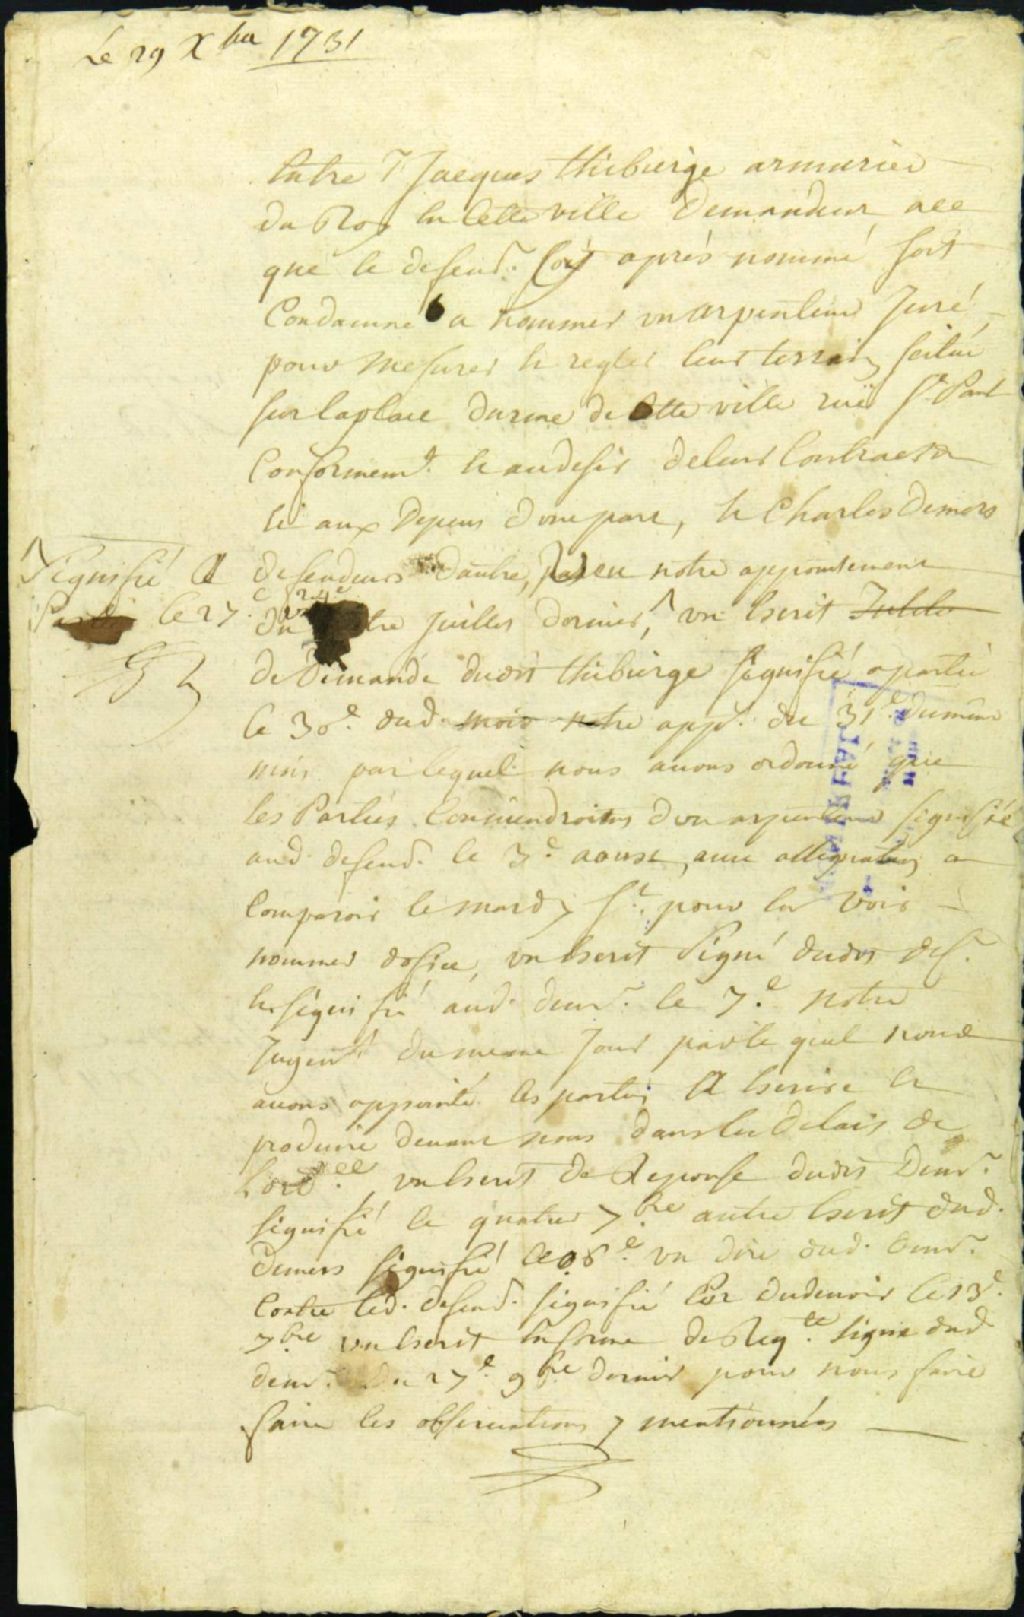 Le 29 Xbre 1731
Entre Sr Jacques thibierge armurier
du Roy en Cette ville Demandeur a ce
que le defend.r Cy après nommé soit
Condamné a nommer un arpenteur Juré
pour mesurer et regler leur terrain scitué
sur la place darme de Cette ville ruë St Paul
Conformemt. et au desir de leurs Contracts
et aux Depens d'une part, et Charles Demers
defendeur d'autre, Veu notre appointement
du juillet dernier, un Escrit
Signifié A
Partie le 27
de Demande dudit thibierge signifié a partie
le 30e. dud. mois notre appt. du 31e. du même
mois par lequel nous avons ordonné que
les Parties Conviendroient d'un arpenteur signifié
aud. defend.r le 3e. aoust, avec assignation a
Comparoir le mardy St. pour en voir
nommer d'office, un Escrit Signé dudit def.r
et signifié aud. deur. le 7.e notre
Jugemt du mesme Jour par le quel nous
avons appointé les parties A Escrire et
produire devant nous dans les delais de
L'ordce, un Escrit de Reponse dudit Deur.
signifié le quatre 7.bre autre Escrit dud.
demers signifié le 8.e un dire dud. deur.
Contre led. defend.r signifié le 13e.
7bre un Escrit En forme de Reqte. signé dud
deur. du 27.e 9bre dernier pour nous faire
faire les observations y mentionnées